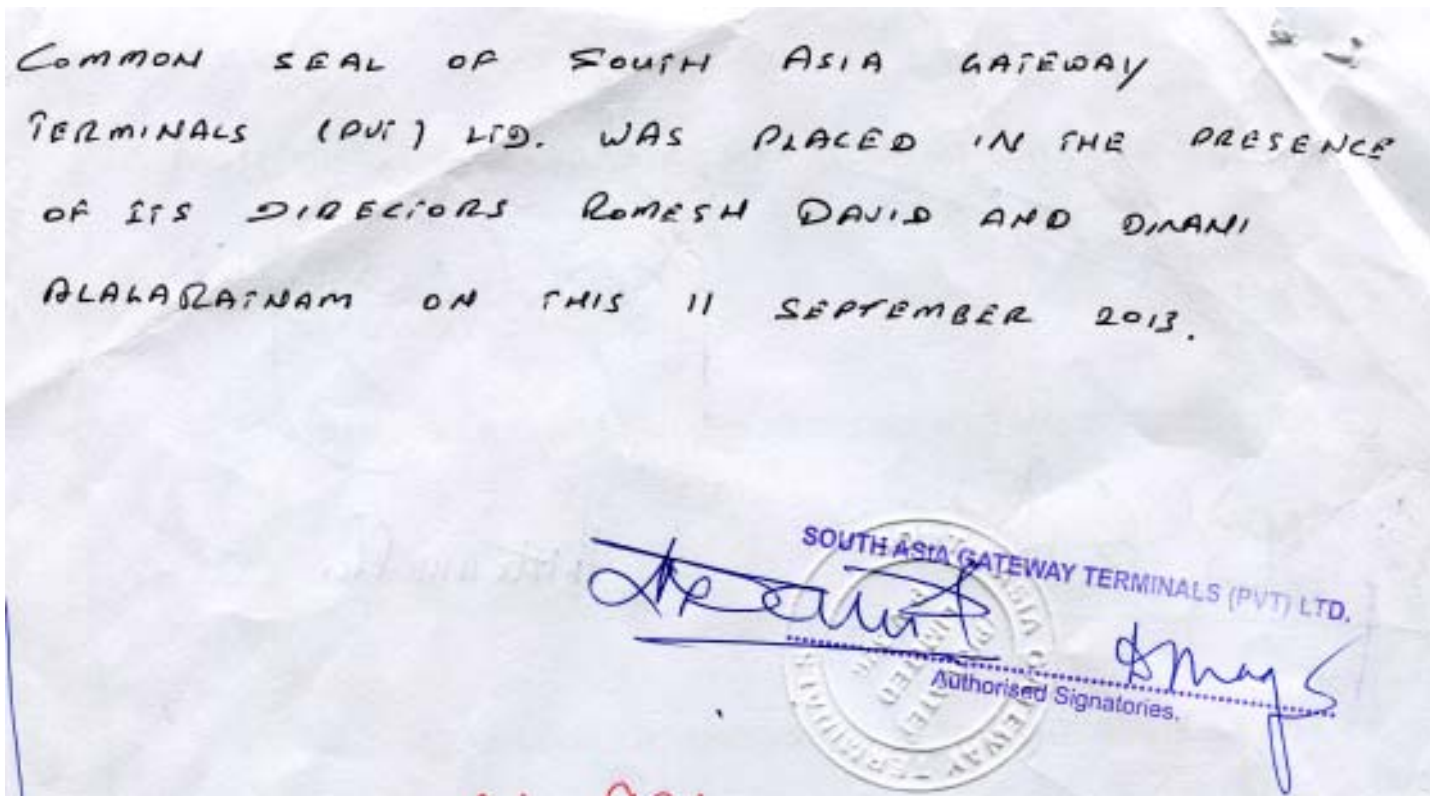 COMMON SEAL OF SOUTH ASIA GATEWAY
TERMINALS (PVT) LTD. WAS PLACED IN THE PRESENCE
OF ITS DIRECTORS ROMESH DAVID AND DINANI
ALALARATNAM ON THIS 11 SEPTEMBER 2013.
SOUTH ASIA GATEWAY TERMINALS (PVT) LTD.
Authorised Signatories.